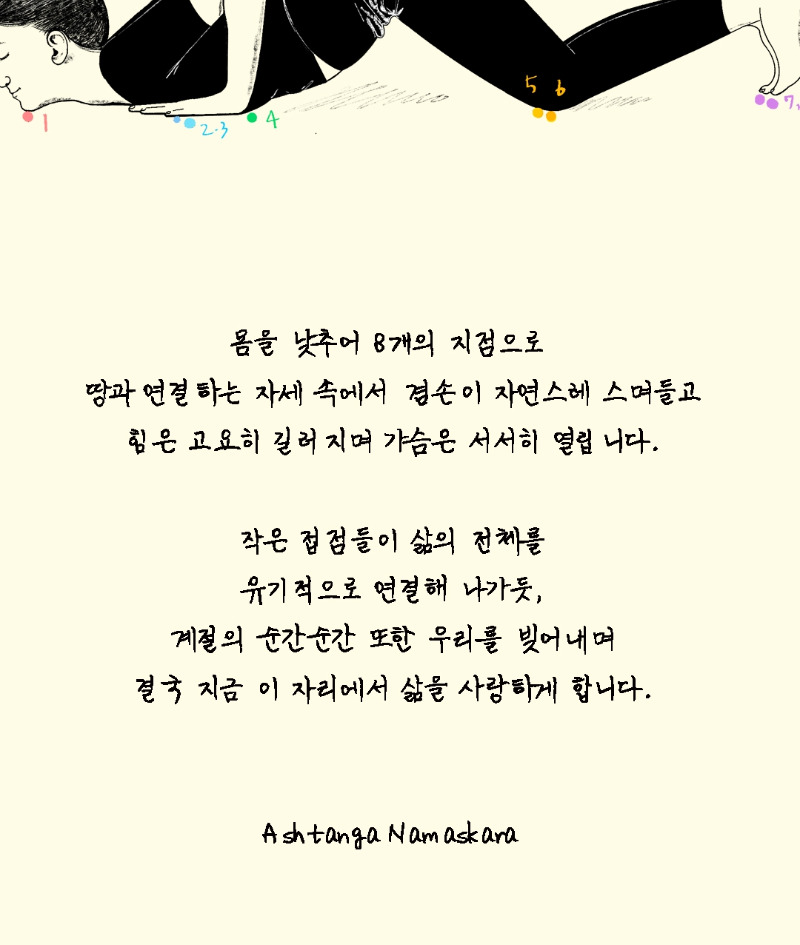 1
2.3
4
5 6
7,
몸을 낮추어 8개의 지점으로
땅과 연결하는 자세 속에서 겸손이 자연스레 스며들고
힘은 고요히 길러지며 가슴은 서서히 열립니다.
작은 접점들이 삶의 전체를
유기적으로 연결해 나가듯,
계절의 순간순간 또한 우리를 빚어내며
결국 지금 이 자리에서 삶을 사랑하게 합니다.
Ashtanga Namaskara